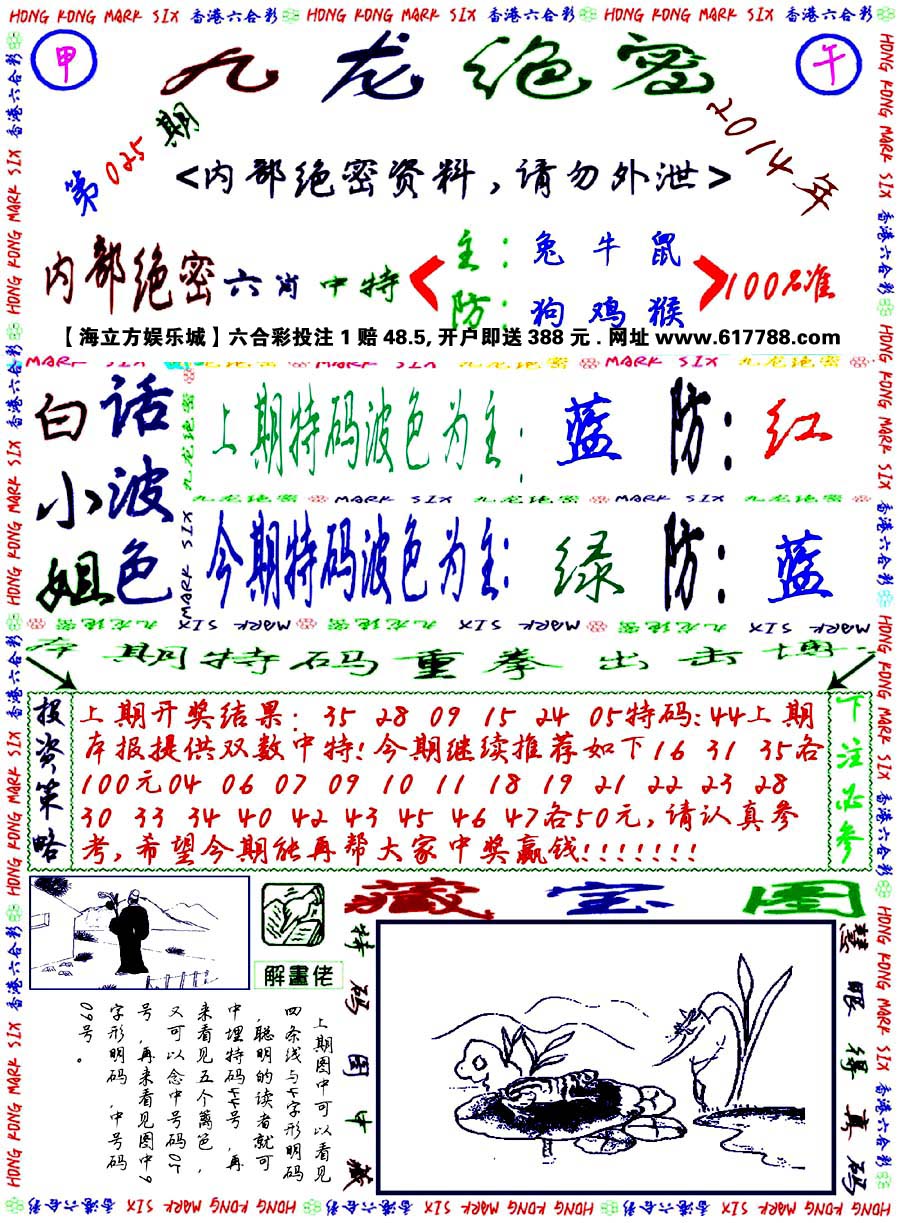 HONG KONG MARK SIX 香港六合彩 HONG KONG MARK SIX 香港六合彩 HONG KONG MARK SIX 香港六合彩
甲
九龙绝密
午
第025期
2014年
<内部绝密资料,请勿外泄>
内部绝密六肖中特
主:兔牛鼠
防:狗鸡猴
100%准
【海立方娱乐城】六合彩投注1赔48.5,开户即送388元.网址www.617788.com
白小姐
话波色
上期特码波色为主:蓝 防:红
九龙绝密 MARK SIX 九龙绝密 MARK SIX 九龙绝密
今期特码波色为主:绿 防:蓝
本期特码重拳出击博
投资策略
上期开奖结果:35 28 09 15 24 05特码:44上期
本报提供双数中特!今期继续推荐如下16 31 35各
100元04 06 07 09 10 11 18 19 21 22 23 28
30 33 34 40 42 43 45 46 47各50元,请认真参
考,希望今期能再帮大家中奖赢钱!!!!!!!
下注必参
藏宝图
解畫佬
上期图中可以看见
四条线与4字形明码
,聪明的读者就可
中埋特码44号,再
来看见五个篱色,
又可以念中号码05
号,再来看见图中9
字形明码,中号码
09号。
特码图中藏
慧眼得真码